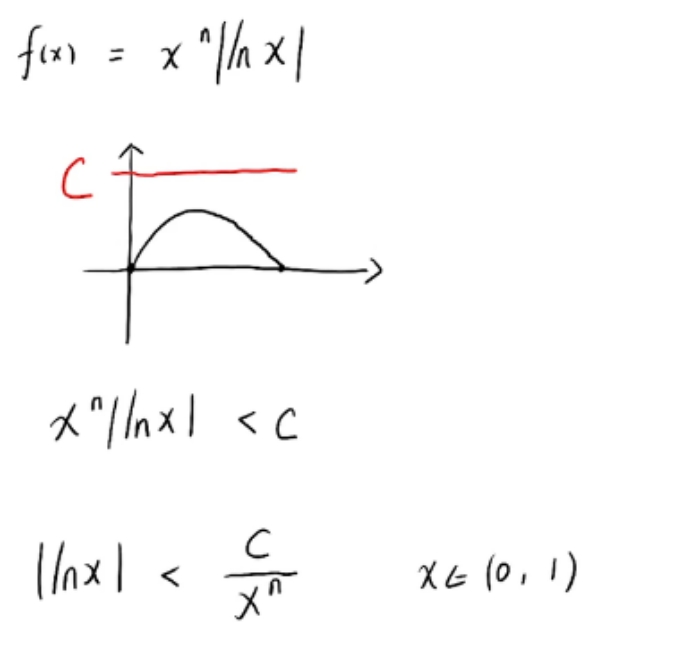 f(x) = xⁿ|ln x|
C
xⁿ|ln x| < C
|ln x| < C/xⁿ x ∈ (0, 1)